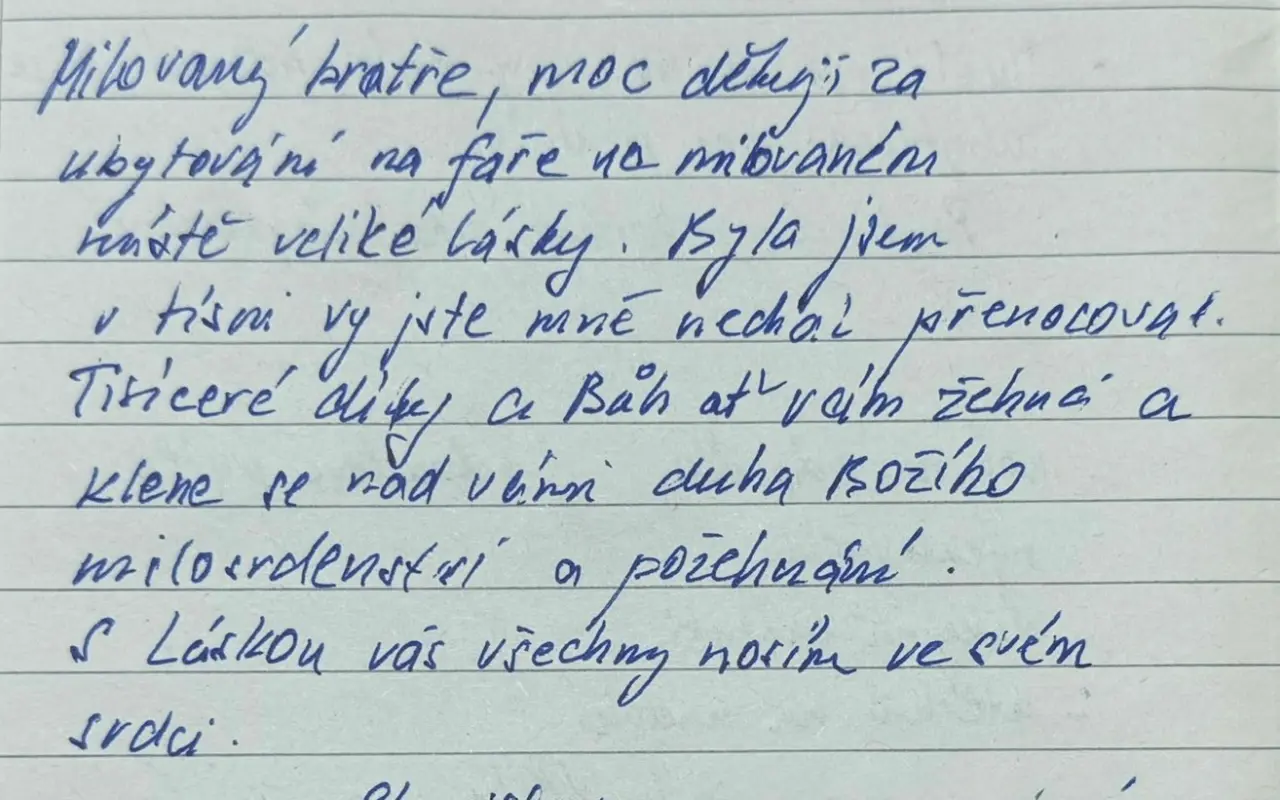 Milovaný bratře, moc děkuji za
ubytování na faře na milovaném
místě veliké lásky. Byla jsem
v tísni vy jste mně nechal přenocovat.
Tisíceré díky a Bůh ať vám žehná a
klene se nad vámi duha Božího
milosrdenství a požehnání.
S Láskou vás všechny nosím ve svém
srdci.